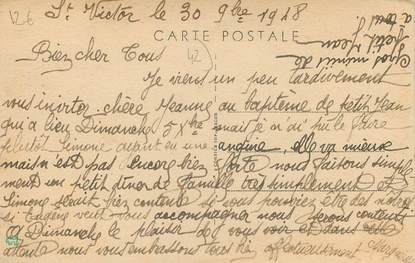 126
St Victor le 30 9bre 1928
CARTE POSTALE
Bien cher Tous
42
Je viens un peu tardivement
vous inviter chère Jeanne au baptême de petit Jean
qui a lieu Dimanche 5 Xbre mais je n'ai pu le faire
plutôt Simone ayant eu une angine, elle va mieux
mais n'est pas encore bien forte nous faisons simple
ment un petit diner de famille très simplement et
Simone serait bien contente si vous pouviez être des notres
si Eugène veut vous accompagner nous serons content
A Dimanche le plaisir de vous voir et dans cette
attente nous vous embrassons tous bien affectueusement
Gros mimis de
petit Jean
à tous